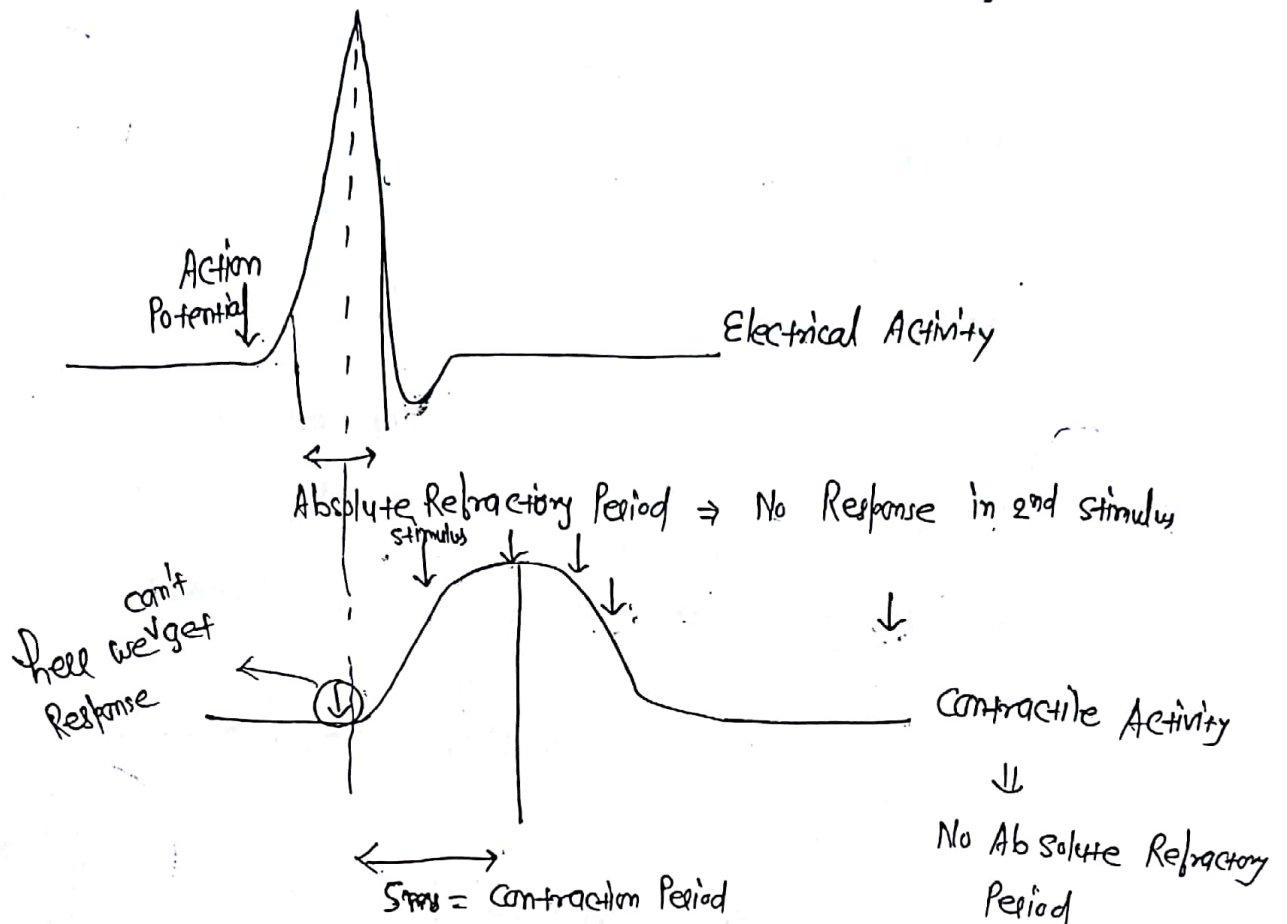 Action
Potential
Electrical Activity
Absolute Refractory Period ⇒ No Response in 2nd stimulus
stimulus
can't
here we get
Response
Contractile Activity
⇓
No Absolute Refractory
Period
5ms = Contraction Period